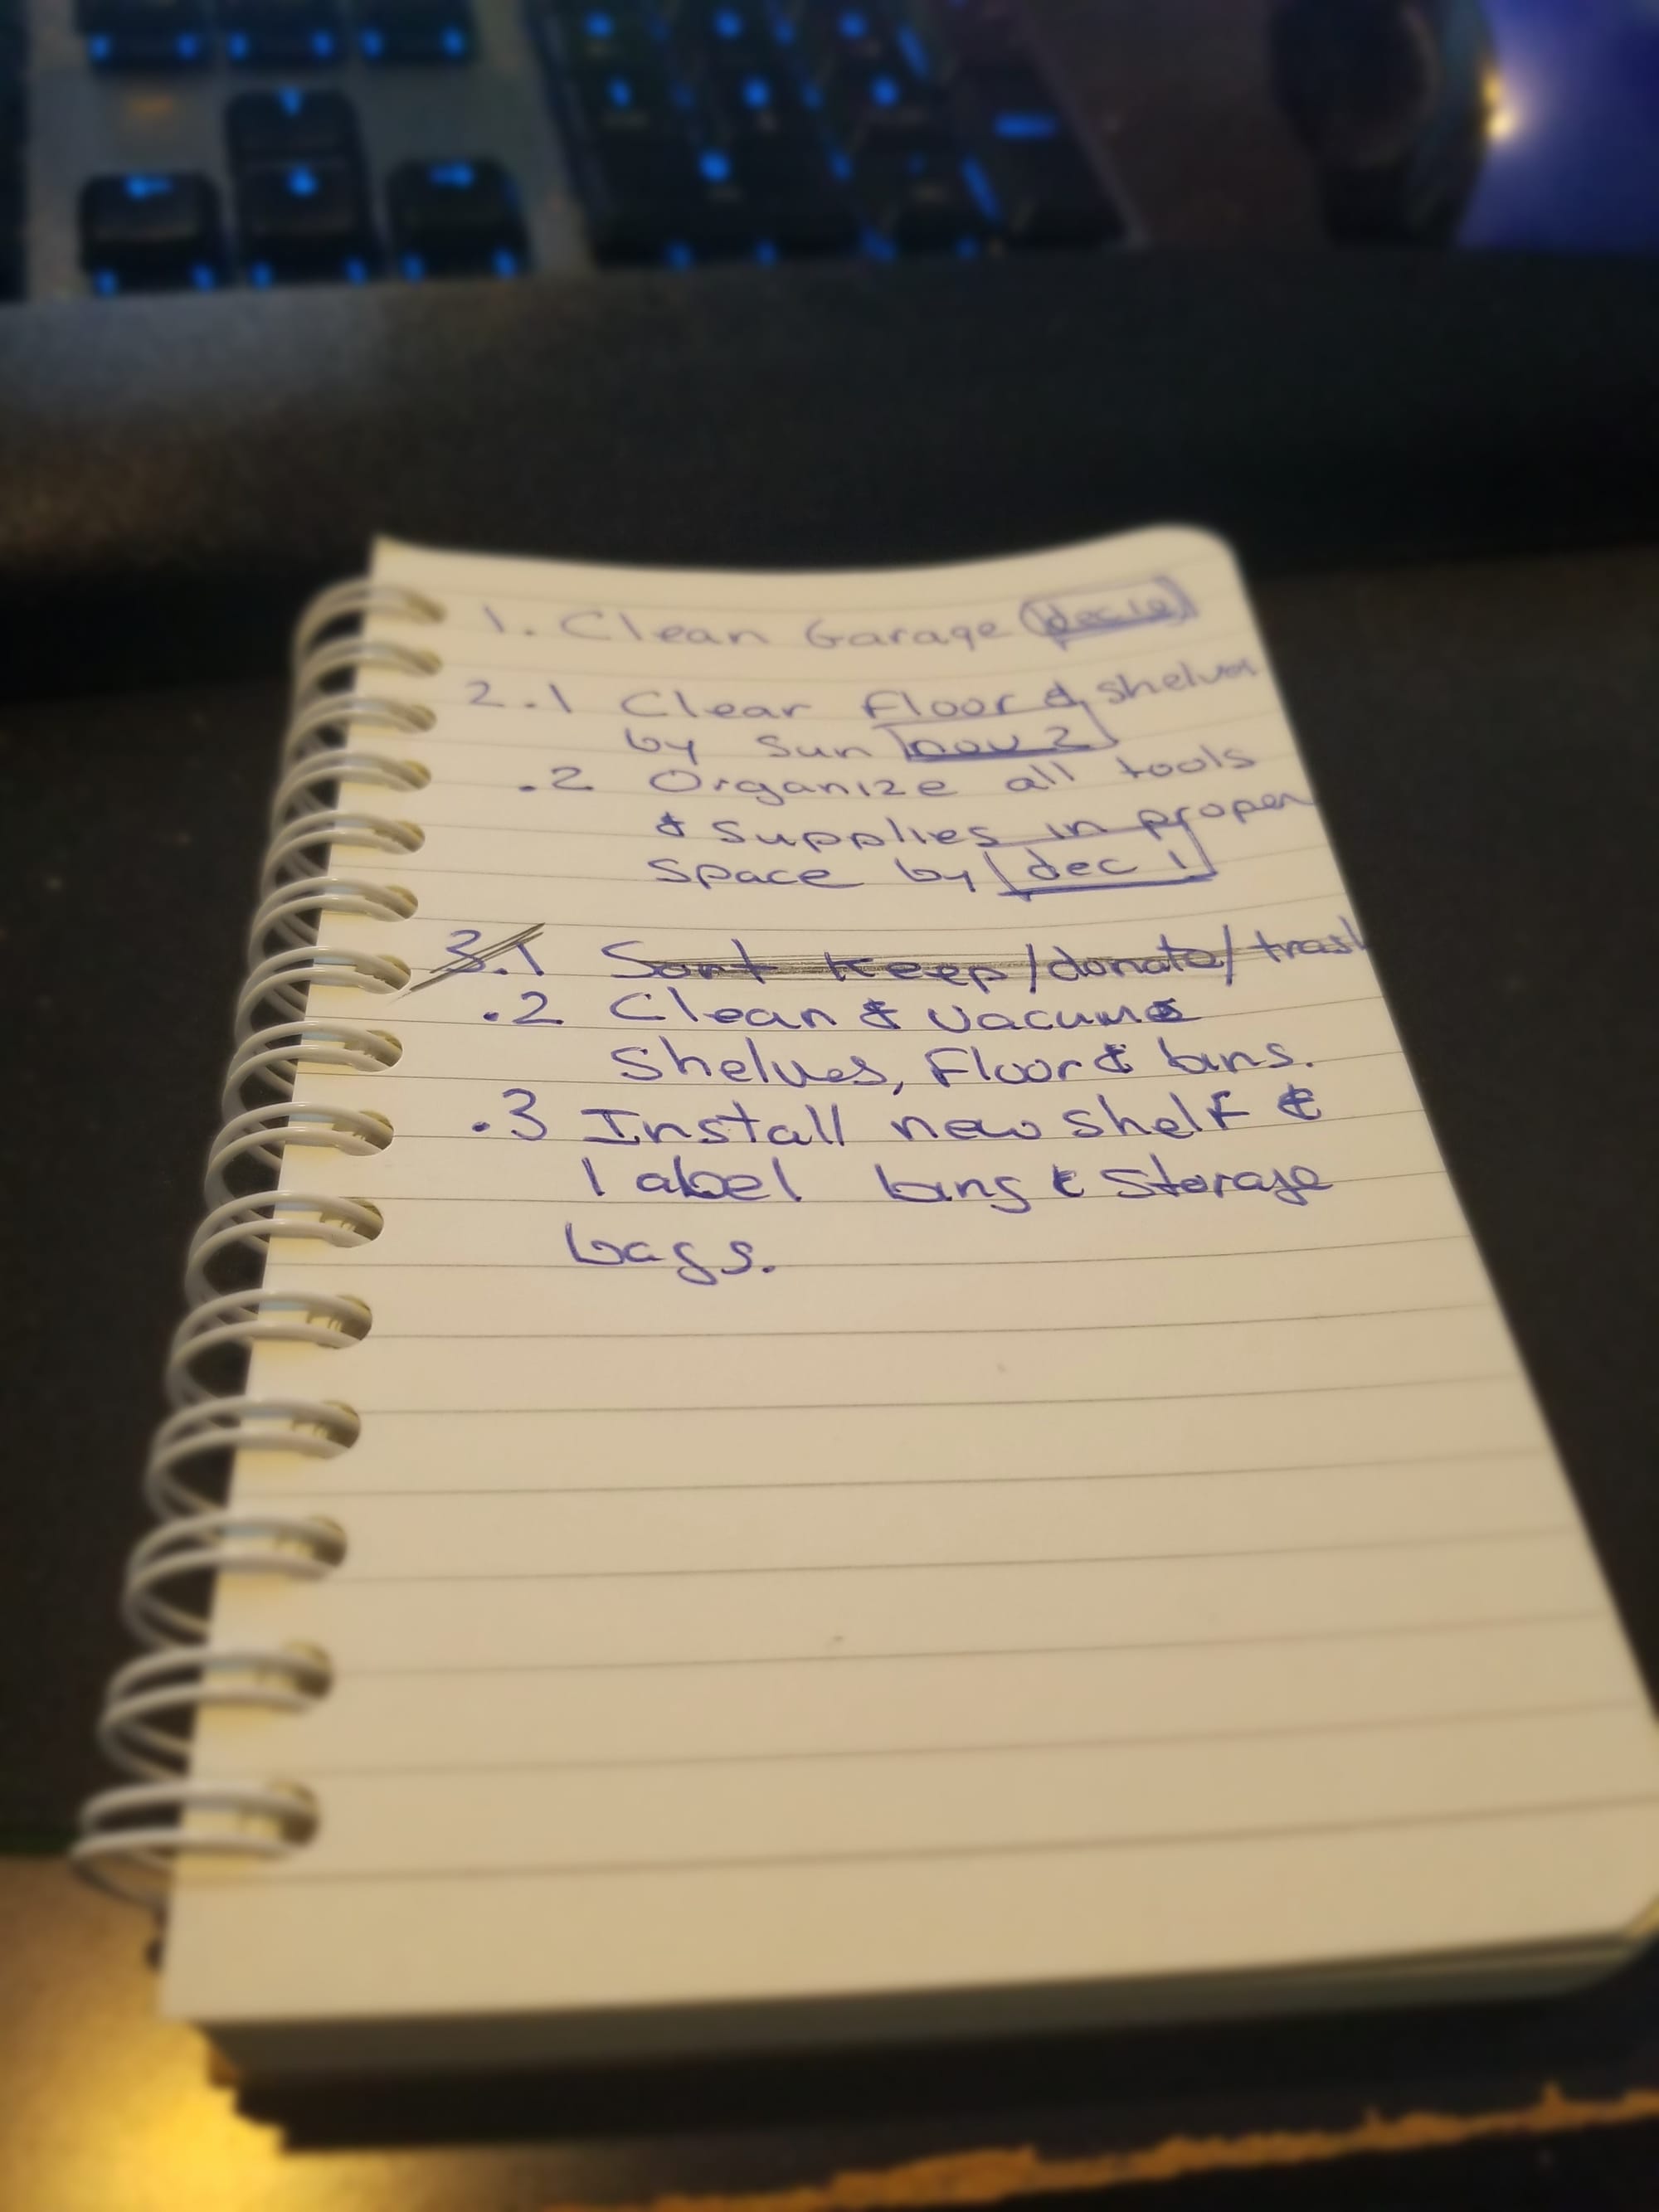 1. Clean Garage
2.1 Clear Floor & shelves
by Sun nov 2
.2 Organize all tools
& supplies in proper
space by dec 1
3.1 Sort Keep/donate/trash
.2 Clean & vacume
Shelves, Floor & bins.
.3 Install new shelf &
label bins & Storage
bags.